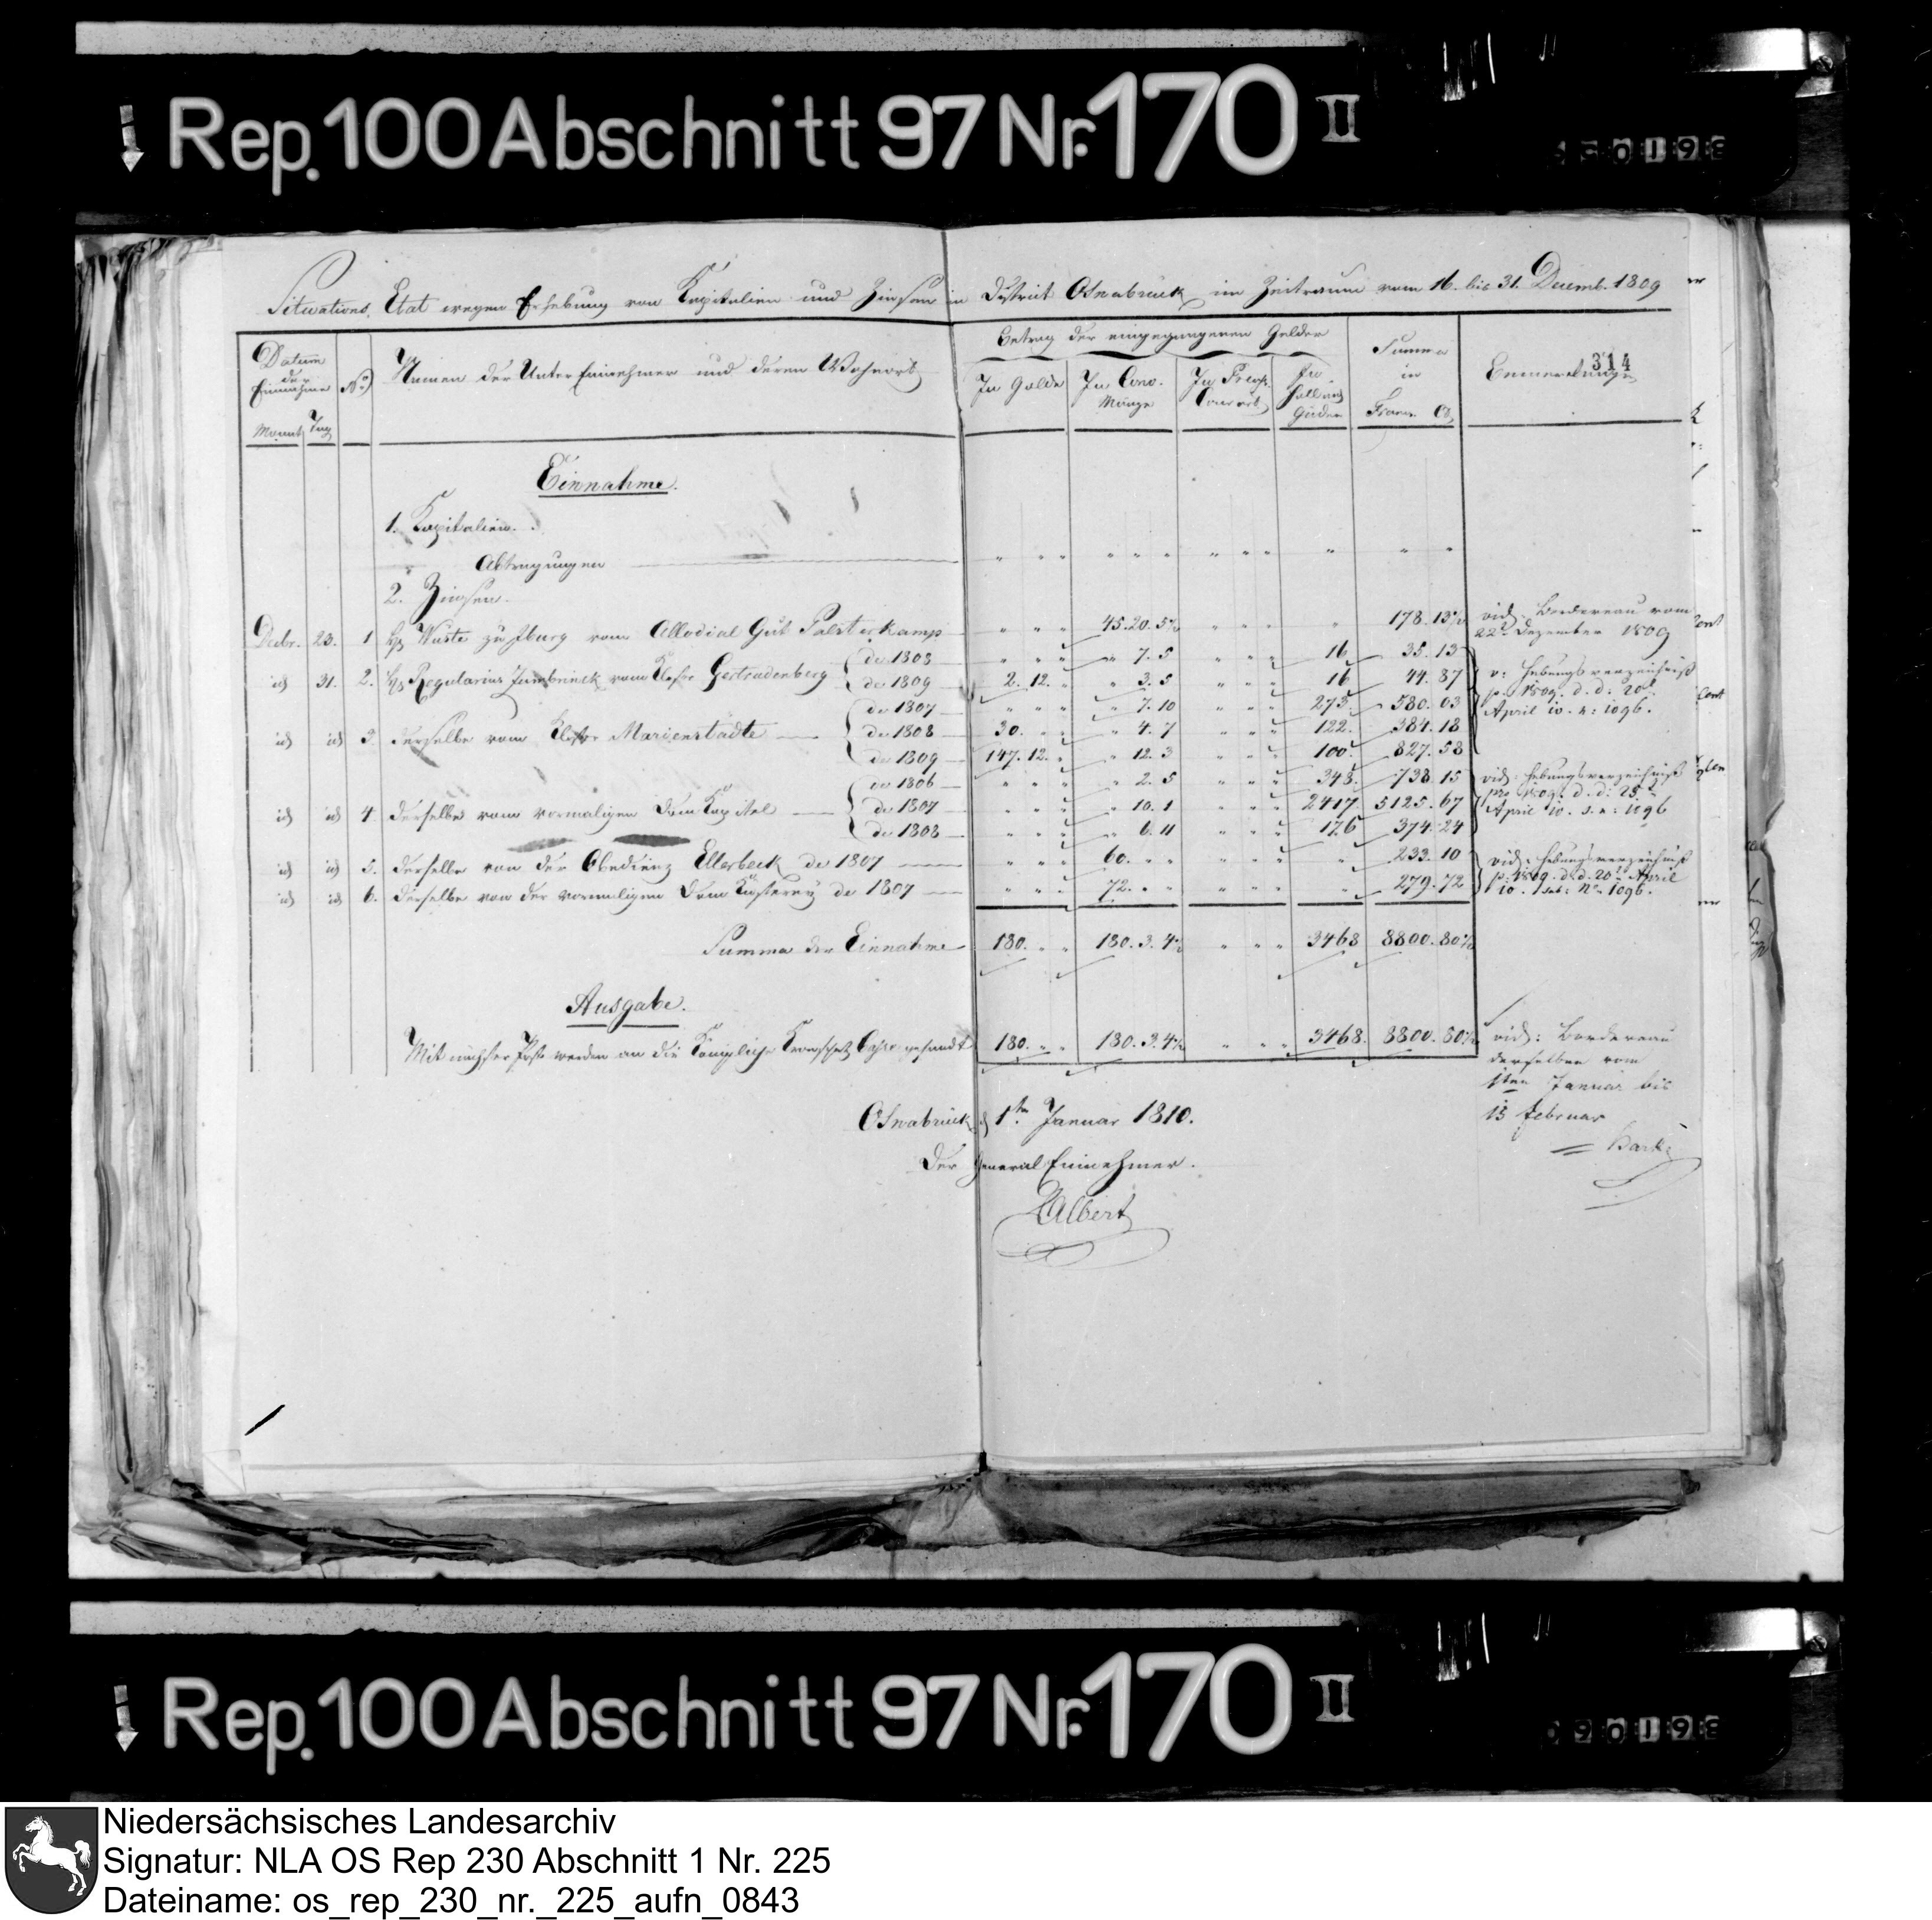 Rep. 100 Abschnitt 97 Nr. 170 II
Situations Etat wegen Erhebung von Kapitalien und Zinsen im District Osnabrück im Zeitraum vom 16. bis 31. Decemb. 1809
Datum der Einnahme
Monat Tag
No
Namen der Unter Einnehmer und deren Wohnort
Betrag der eingegangenen Gelder
In Golde
In Conv. Münze
In
In holländ Gulden
Summa in Franc Cs
314
Einnahme.
1. Kapitalien.
Abtragungen " " " " " " " " " " " "
2. Zinsen.
Decbr. 23. 1 Wüste zu Iburg vom Allodial Gut Palsterkamp " " " 45. 20. 5½ " " " " 178. 13½ vid. Bordereau vom 22 Dezember 1809
id 31. 2. Regularius vom Kloster Gertrudenberg
de 1808 " " " " 7. 5 " " " 16 35. 13
de 1809 2. 12. " " 3. 5 " " " 16 44. 87
v: Hebungsverzeichniß p. 1809. d. d: 20t April 10. n: 1096.
id id 3 derselbe vom Kloster Marienstädte
de 1807 " " " " 7. 10 " " " 273. 580. 03
de 1808 30. " " " 4. 7 " " " 122. 384. 18
de 1809 147. 12. " " 12. 3 " " " 100 827. 58
id id 4 derselbe vom vormaligen Dom Kapitel
de 1806 " " " " 2. 5 " " " 348. 738. 15
de 1807 " " " " 10. 1 " " " 2417. 5125. 67
de 1808 " " " " 6. 11 " " " 176 374. 24
vid: Hebungsverzeichniß pro 1809. d. d: 25t April 10. s. n: 1096
id id 5. derselbe von der Obedienz Ellerbeck de 1807 " " " 60. " " " " " " 233. 10
id id 6. derselbe von der vormaligen Dom Küsterey de 1807 " " " 72. " " " " " " 279. 72
vid: Hebungsverzeichniß p: 1809. d. d. 20t April 10. sub: No 1096.
Summa der Einnahme 180. " " 180. 3. 4½ " " " 3468 8800. 80½
Ausgabe.
Mit nächster Post werden an die Königliche Kronschatz Casse gesandt 180. " " 180. 3. 4½ " " " 3468. 8800. 80½
vid: Bordereau
derselben vom
1ten Januar bis
15 Februar
Osnabrück d 1ten Januar 1810.
Der General Einnehmer.
Albert
Rep. 100 Abschnitt 97 Nr. 170 II
Niedersächsisches Landesarchiv
Signatur: NLA OS Rep 230 Abschnitt 1 Nr. 225
Dateiname: os_rep_230_nr._225_aufn_0843